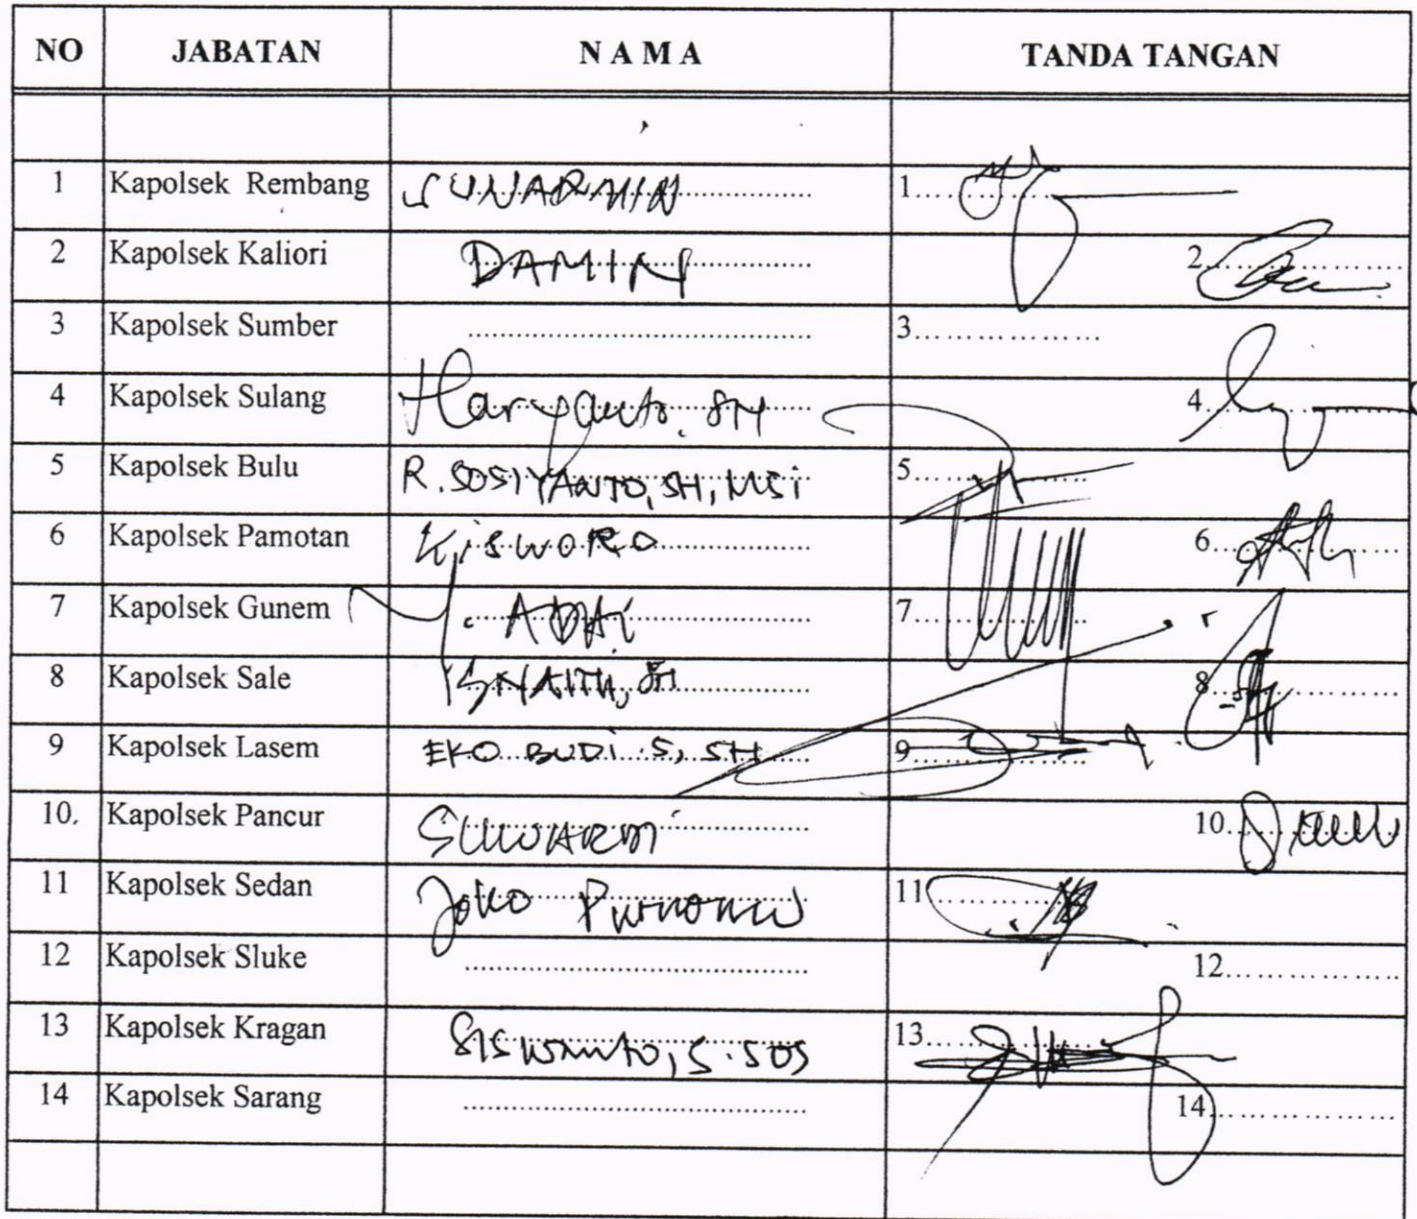 NO JABATAN N A M A TANDA TANGAN
1 Kapolsek Rembang SUNARMIN 1
2 Kapolsek Kaliori DAMIN 2
3 Kapolsek Sumber 3
4 Kapolsek Sulang Haryanto, SH 4
5 Kapolsek Bulu R. SOSIYANTO, SH, MSi 5
6 Kapolsek Pamotan KISWORO 6
7 Kapolsek Gunem 7
8 Kapolsek Sale 8
9 Kapolsek Lasem EKO BUDI S, SH 9
10. Kapolsek Pancur SUWARDI 10
11 Kapolsek Sedan Joko Purnomo 11
12 Kapolsek Sluke 12
13 Kapolsek Kragan Siswanto, S.SOS 13
14 Kapolsek Sarang 14